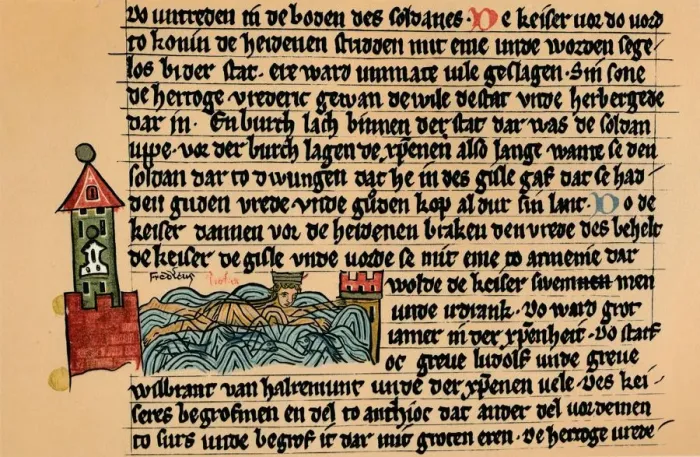 Do untreden in de boden des soldanes. De keiser vor do vord
to konin de heidenen stridden mit eme unde worden sege
los bi der stat. ere ward ummate vile geslagen. Sin sone
de hertoge vrederic gewan de wile de stat vnde herbergede
dar in. En burch lach binnen der stat dar was de soldan
uppe. vor der burch lagen de xp̄enen also lange wante se den
soldan dar to dwungen dat he in des gisle gaf dat se had
den guden vrede vnde guden kop al dur sin lant. Do de
keiser dannen vor de heidenen braken den vrede des behelt
de keiser de gisle vnde vorde se mit eme to armenie dar
Fredericus
wolde de keiser swemmen
unde irdrank. Do ward grot
iamer in der xp̄enheit. Do starf
oc greve ludolf unde greve
wilbrant van halremunt unde der xp̄enen vele. Des kei
seres begrof men en del to anthioc dat ander del vordemen
to surs unde begrof it dar mit groten eren. De hertoge vrede